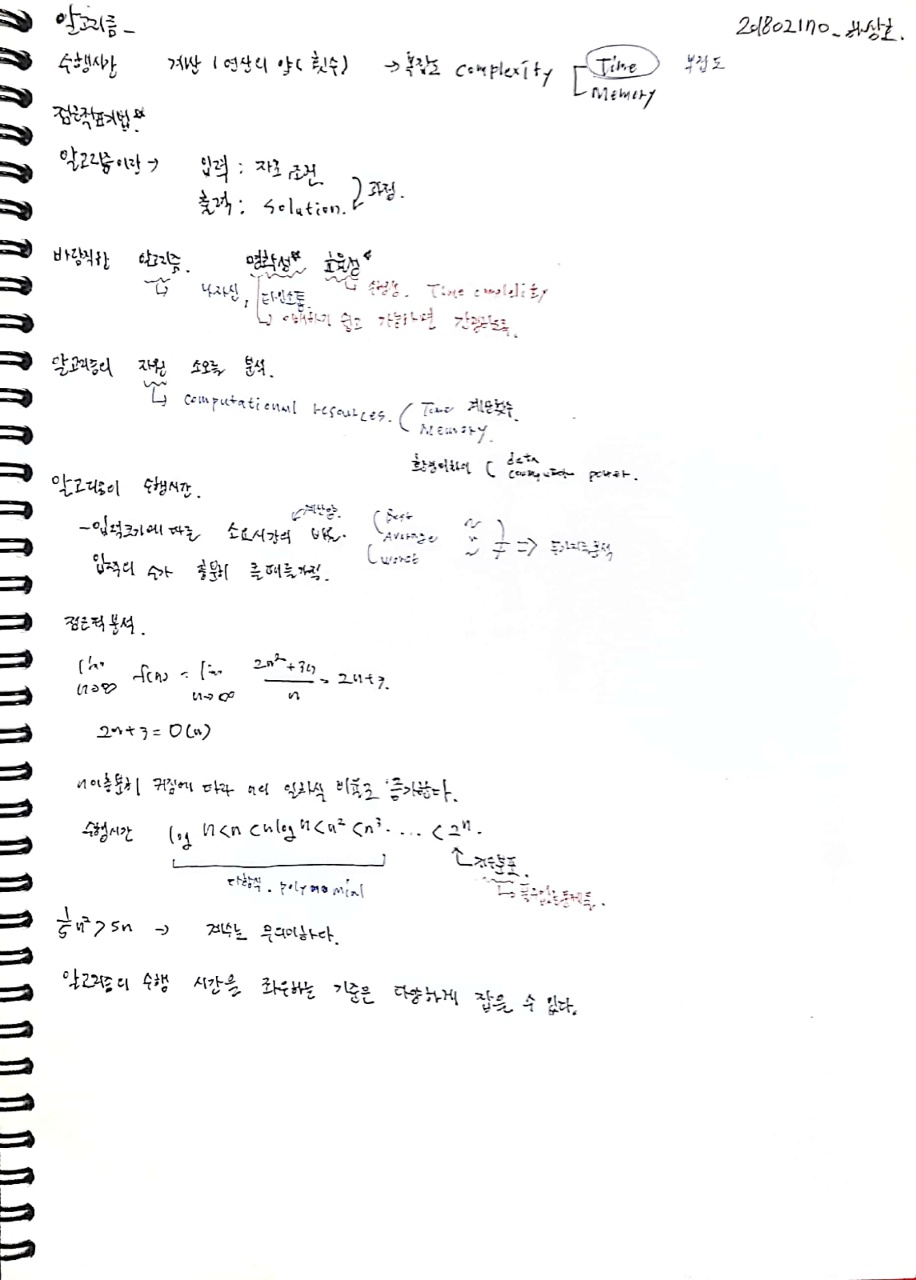 알고리즘_
201802170_허상호.
수행시간 계산 (연산의 양(횟수) → 복잡도 complexity Time 복잡도
Memory
점근적표기법*
알고리즘이란 → 입력 : 자료, 조건
출력 : Solution. 과정.
바람직한 알고리즘. 명확성* 효율성*
나자신, 타인소통. 수행량. Time complelity
이해하기 쉽고 가능하면 간결하도록.
알고리즘의 자원 소요를 분석.
computational resources. Time 계산횟수.
Memory.
data
computer power.
알고리즘의 수행시간.
계산량.
-입력크기에 따른 소요시간의 Best
Average
worst
입력의 수가 충분히 클때를가정.
점근적분석.
lim n→∞ f(n) = lim n→∞ 2n²+3n / n = 2n+3.
2n+3 = O(n)
n이충분히 커짐에 따라 n의 일차식 비율로 증가한다.
수행시간 log n < n < nlog n < n² < n³ .... < 2ⁿ.
지수분포.
다항식. polynomial
풀수없는문제들.
1/5 n² > 5n → 계수는 무의미하다.
알고리즘의 수행 시간을 좌우하는 기준은 다양하게 잡을 수 있다.